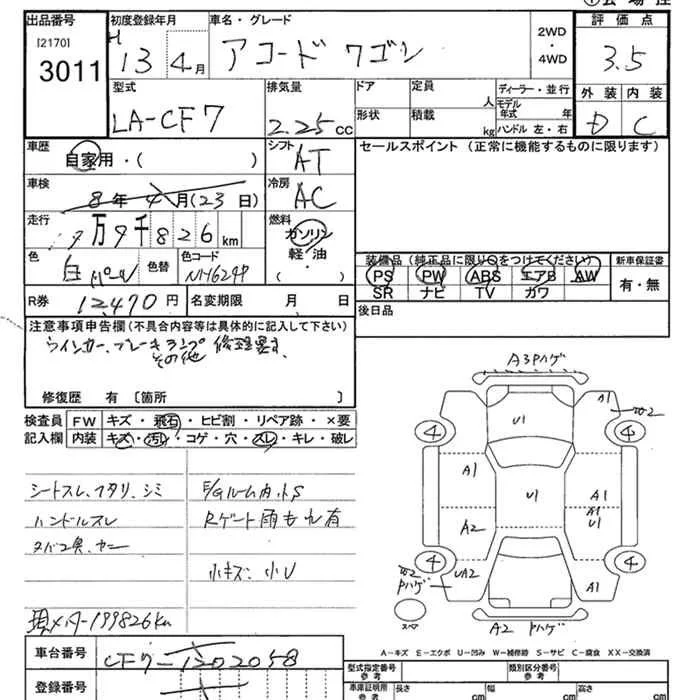 出品番号
[2170]
3011
初度登録年月
H 13 4月
車名・グレード
アコード ワゴン
2WD
・
4WD
評価点
3.5
型式
LA-CF7
排気量
2.25 cc
ドア
形状
定員
人
積載
kg
ディーラー・並行
モデル年式 年
ハンドル 左・右
外装 内装
D C
車歴
自家用・( )
シフト
AT
セールスポイント (正常に機能するものに限ります)
車検
8年4月(23日)
冷房
AC
走行
9万9千826km
燃料
ガソリン
軽・油
( )
色
白パール
色替
色コード
NH624P
装備品(純正品に限り○をつけてください)
新車保証書
PS PW ABS エアB AW
有・無
SR ナビ TV カワ
R券
12,470円
名変期限 月 日
後日品
注意事項申告欄(不具合内容等は具体的に記入して下さい)
ウインカー、ブレーキランプ 修理要す
その他
修復歴 有 〔箇所 〕
検査員 FW キズ・飛石・ヒビ割・リペア跡・×要
記入欄 内装 キズ・汚レ・コゲ・穴・スレ・キレ・破レ
シートスレ、ヘタリ、シミ
ハンドルスレ
タバコ臭、ヤニ
E/Gルーム内小S
Rゲート雨もれ有
小キズ・小U
現メーター199826km
A3Pハゲ
A1
U1
4
4
A1
U1
A1
A1
U1
A2
4
4
UA2
A1
Pハゲ
スペア
A2 Pハゲ
A-キズ E-エクボ U-凹み W-補修跡 S-サビ C-腐食 XX-交換済
車台番号
CF7-1302058
登録番号
型式指定番号
参考
類別区分番号
参考
車庫証明用
参考
長さ
cm
幅
cm
高さ
cm